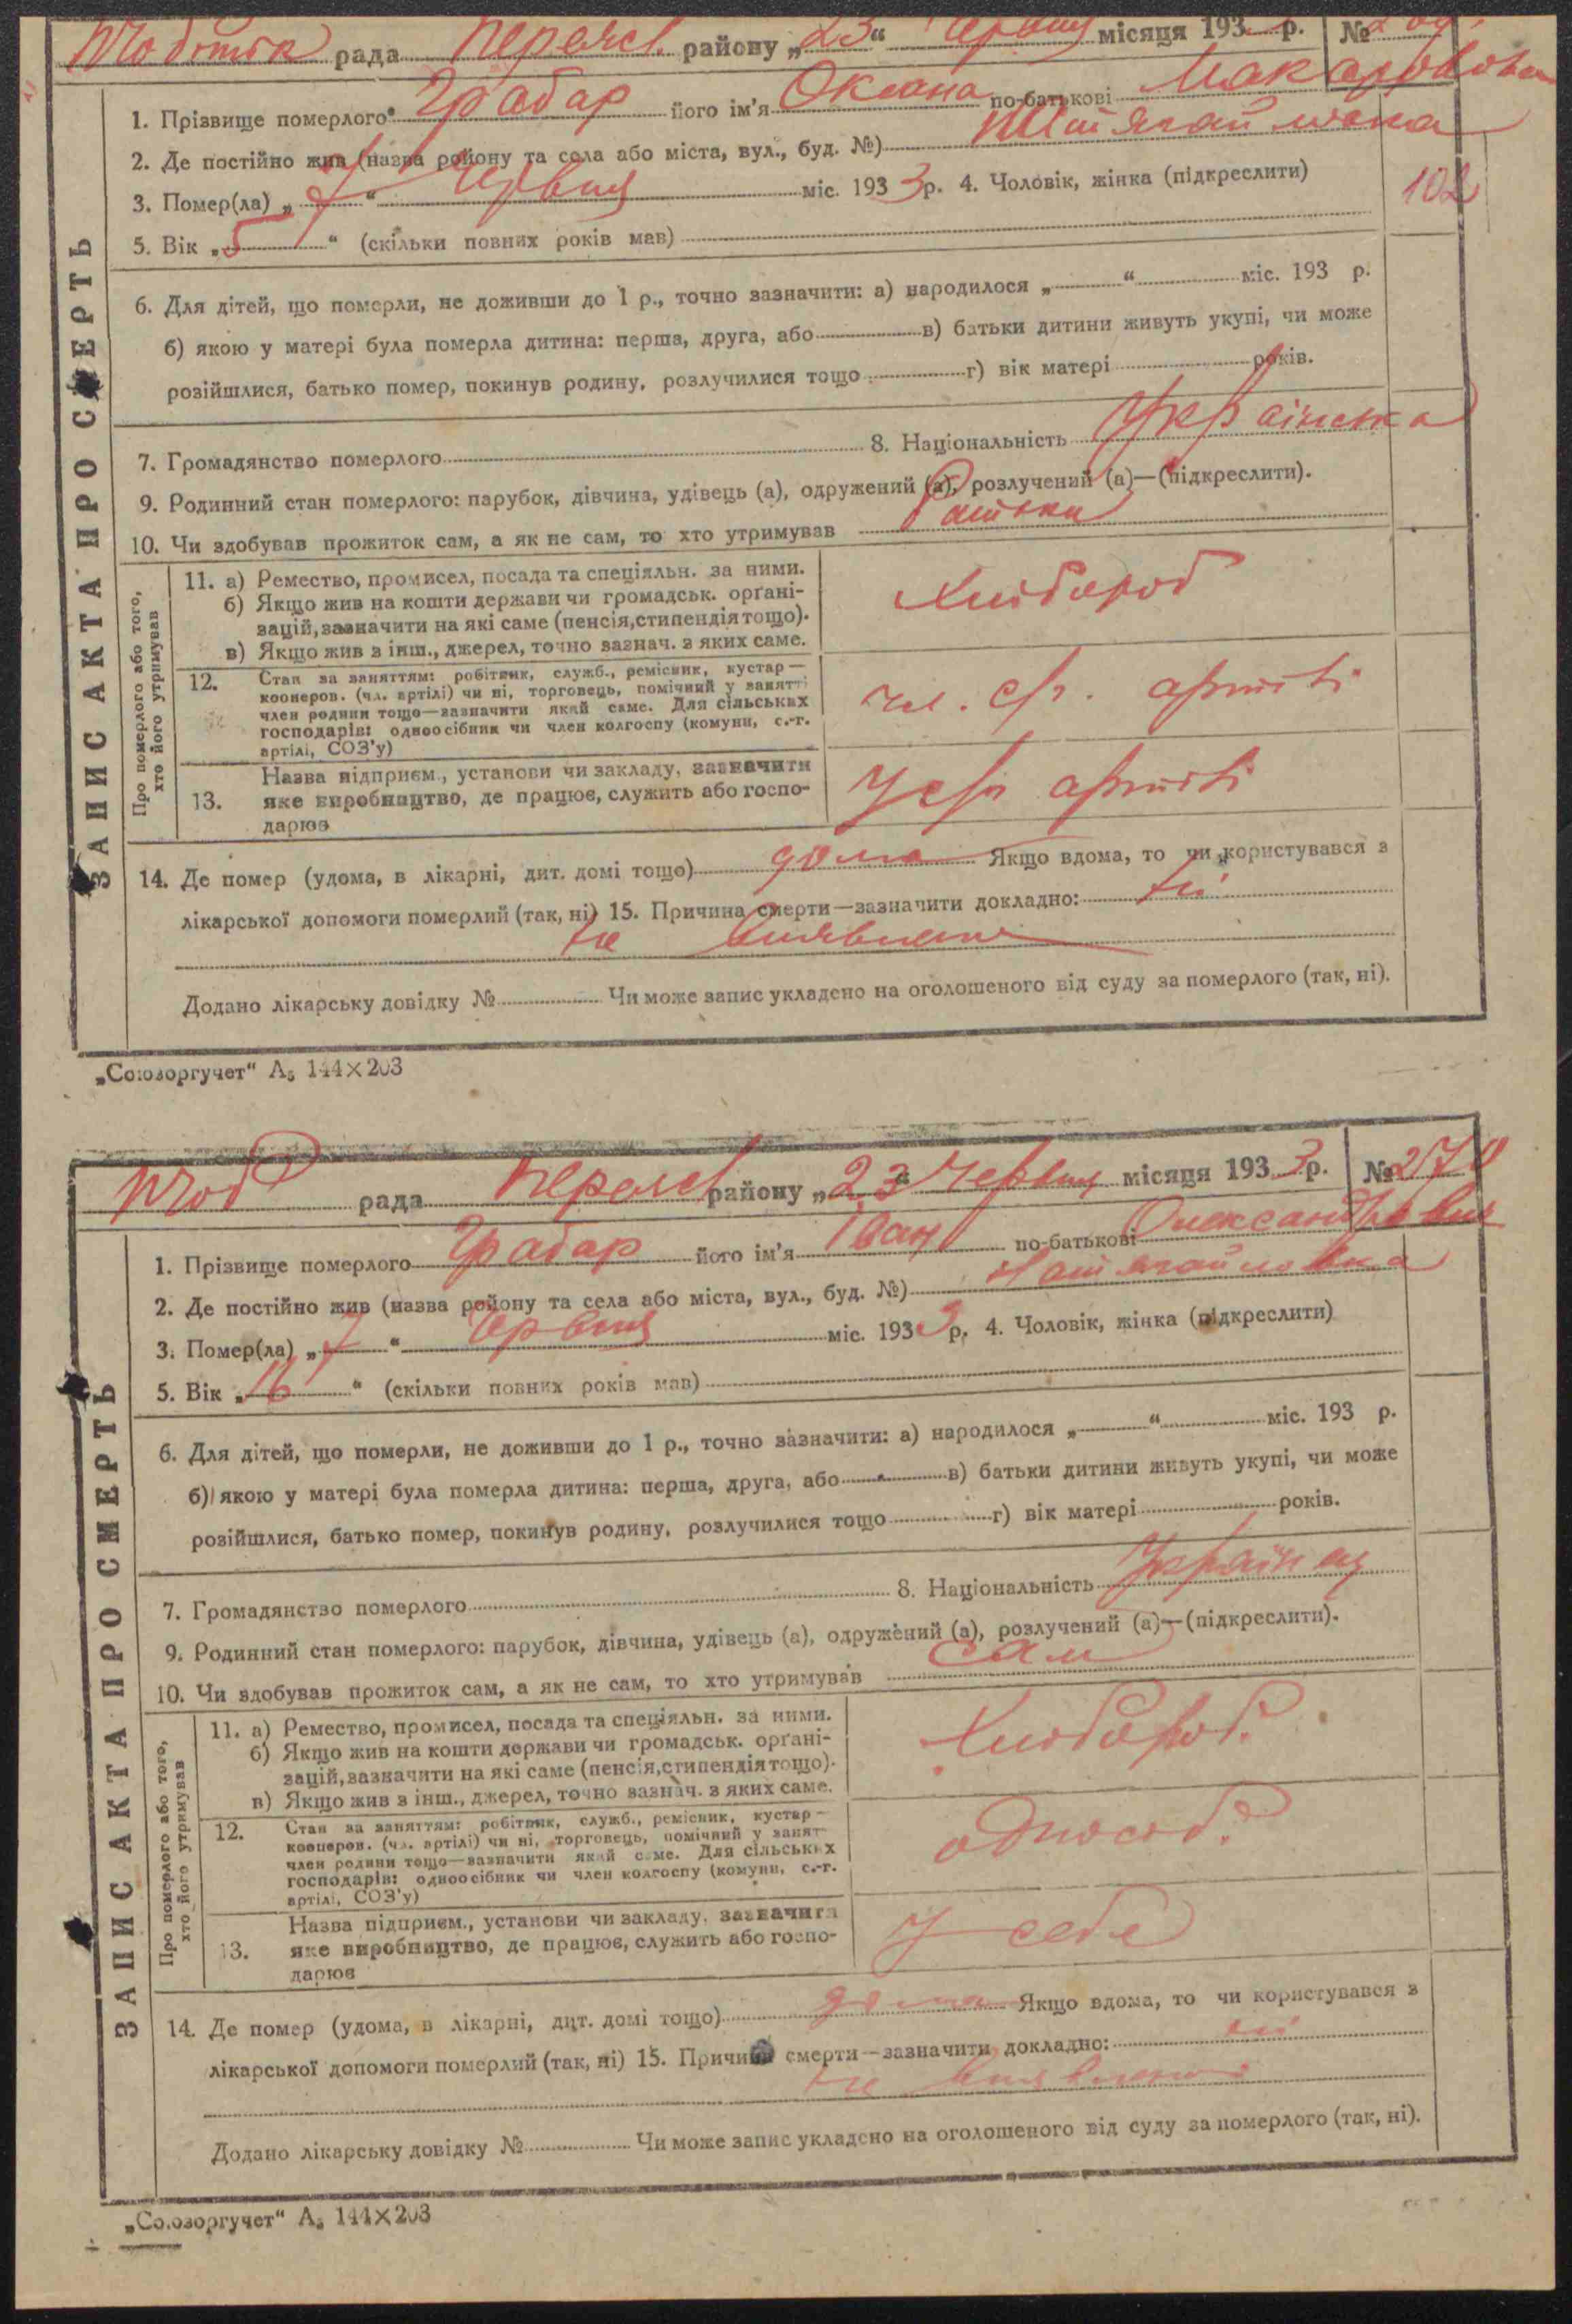 рада Переясл. району „23“ Червня місяця 193 р. №
1. Прізвище померлого Грабар його ім'я Оксана по-батькові Макаровна
2. Де постійно жив (назва району та села або міста, вул., буд. №)
3. Помер(ла) „7“ Червня міс. 1933р. 4. Чоловік, жінка (підкреслити)
102
5. Вік „5“ (скільки повних років мав)
6. Для дітей, що померли, не доживши до 1 р., точно зазначити: а) народилося „ “ міс. 193 р.
б) якою у матері була померла дитина: перша, друга, або в) батьки дитини живуть укупі, чи може
розійшлися, батько помер, покинув родину, розлучилися тощо г) вік матері років.
7. Громадянство померлого 8. Національність Українська
9. Родинний стан померлого: парубок, дівчина, удівець (а), одружений (а), розлучений (а)—(підкреслити).
10. Чи здобував прожиток сам, а як не сам, то хто утримував Батьки
ЗАПИС АКТА ПРО СМЕРТЬ
Про померлого або того,
хто його утримував
11. а) Ремество, промисел, посада та спеціяльн. за ними.
б) Якщо жив на кошти держави чи громадськ. орґані-
зацій, зазначити на які саме (пенсія, стипендія тощо).
в) Якщо жив з інш., джерел, точно зазнач. з яких саме.
Хлібороб
12. Стан за заняттям: робітник, служб., ремісник, кустар—
кооперов. (чл. артілі) чи ні, торговець, помічний у занятті
член родини тощо—зазначити який саме. Для сільських
господарів: одноосібник чи член колгоспу (комуни, с.-г.
артілі, СОЗ'у)
чл. с/г. артілі
13. Назва підприєм., установи чи закладу, зазначити
яке виробництво, де працює, служить або госпо-
дарює
У с/г артілі
14. Де помер (удома, в лікарні, дит. домі тощо) дома Якщо вдома, то чи користувався з
лікарської допомоги померлий (так, ні) 15. Причина смерти—зазначити докладно: ні
не виявлено
Додано лікарську довідку № Чи може запис укладено на оголошеного від суду за померлого (так, ні).
„Союзоргучет“ А₅ 144×203
рада Переясл району „23“ Червня місяця 1933р. №270
1. Прізвище померлого Грабар його ім'я Іван по-батькові Олександрович
2. Де постійно жив (назва району та села або міста, вул., буд. №)
3. Помер(ла) „7“ Червня міс. 1933р. 4. Чоловік, жінка (підкреслити)
5. Вік „16“ (скільки повних років мав)
6. Для дітей, що померли, не доживши до 1 р., точно зазначити: а) народилося „ “ міс. 193 р.
б) якою у матері була померла дитина: перша, друга, або в) батьки дитини живуть укупі, чи може
розійшлися, батько помер, покинув родину, розлучилися тощо г) вік матері років.
7. Громадянство померлого 8. Національність Українец
9. Родинний стан померлого: парубок, дівчина, удівець (а), одружений (а), розлучений (а)—(підкреслити).
10. Чи здобував прожиток сам, а як не сам, то хто утримував сам
ЗАПИС АКТА ПРО СМЕРТЬ
Про померлого або того,
хто його утримував
11. а) Ремество, промисел, посада та спеціяльн. за ними.
б) Якщо жив на кошти держави чи громадськ. орґані-
зацій, зазначити на які саме (пенсія, стипендія тощо).
в) Якщо жив з інш., джерел, точно зазнач. з яких саме.
Хлібороб.
12. Стан за заняттям: робітник, служб., ремісник, кустар—
кооперов. (чл. артілі) чи ні, торговець, помічний у занят
член родини тощо—зазначити який саме. Для сільських
господарів: одноосібник чи член колгоспу (комуни, с.-г.
артілі, СОЗ'у)
одноосоb.
13. Назва підприєм., установи чи закладу, зазначити
яке виробництво, де працює, служить або госпо-
дарює
У себе
14. Де помер (удома, в лікарні, дит. домі тощо) дома Якщо вдома, то чи користувався з
лікарської допомоги померлий (так, ні) 15. Причина смерти—зазначити докладно: ні
не виявлено
Додано лікарську довідку № Чи може запис укладено на оголошеного від суду за померлого (так, ні).
„Союзоргучет“ А₅ 144×203